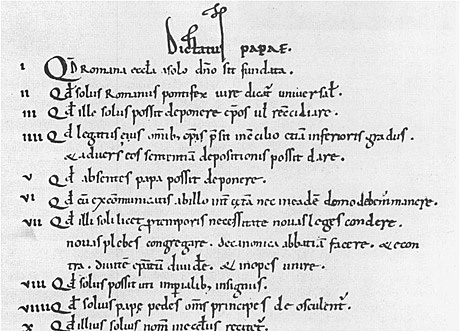 Dictatus papae.
I Qd Romana eccła a solo dño sit fundata.
II Qd solus Romanus pontifex iure dicat universał.
III Qd ille solus possit deponere ep̄os uł reconciliare.
IIII Qd legatus eius omib; ep̄is p̄sit in concilio etiam inferioris gradus.
& adversus eos sententiam depositionis possit dare.
V Qd absentes papa possit deponere.
VI Qd cū excommunicatis ab illo int̄ cetera nec in eadem domo debem' manere.
VII Qd illi soli licet p temporis necessitate novas leges condere.
novas plebes congregare. de canonica abbatiam facere. & econ
tra. divitem ep̄atum dividere. & inopes unire.
VIII Qd solus possit uti imperialib; insigniis.
VIIII Qd solius papę pedes om̄s principes deosculent̄.
X Qd illius solius nom̄ in ecclesiis recitet̄.